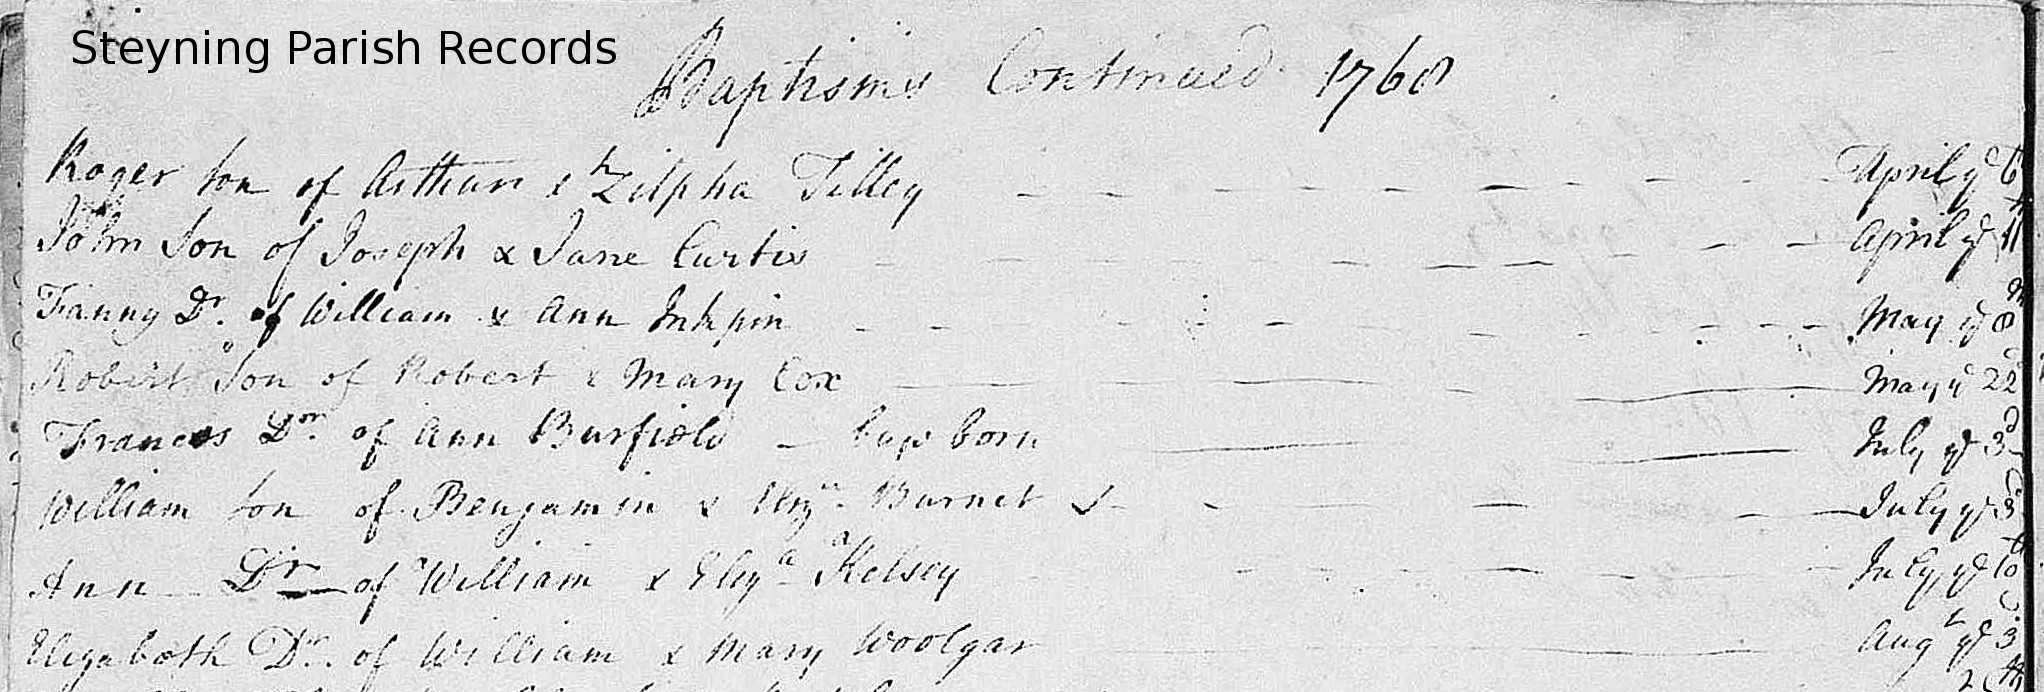 Steyning Parish Records
Baptisms Continued 1768
Roger son of Arthur & Zilpha Tilley April ye 6
John Son of Joseph & Jane Curtis April ye 11
Fanny Dr. of William & Ann Inkpin May ye 8
Robert Son of Robert & Mary Cox May ye 22d
Frances Dr. of Ann Burfield – base born July ye 3d
William son of Benjamin & Elizth. Burnet July ye 3d
Ann Dr of William & Eliza Kelsey July ye 10
Elizabeth Dr. of William & Mary Woolgar Augt ye 3d